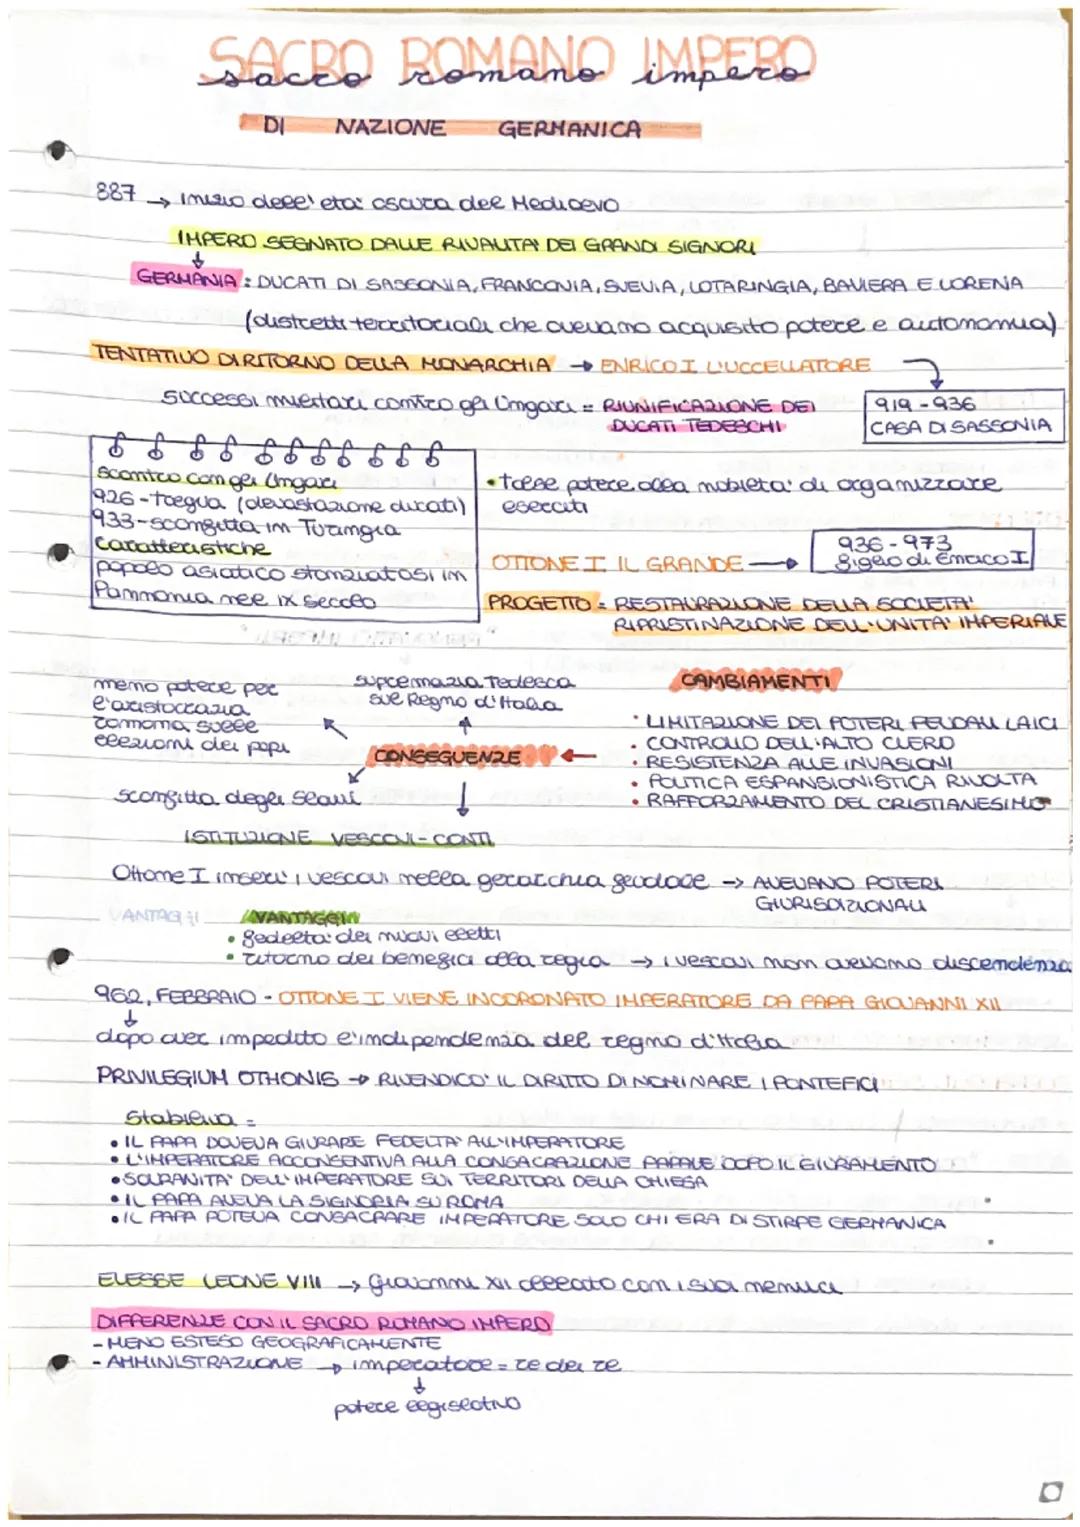 SACRO ROMANO IMPERO
sacro romano impero
DI NAZIONE GERMANICA
887 → inizio dell'età oscura del Medioevo
IMPERO SEGNATO DALLE RIVALITA' DEI GRANDI SIGNORI
↓
GERMANIA: DUCATI DI SASSONIA, FRANCONIA, SVEVIA, LOTARINGIA, BAVIERA E LORENA
(distretti territoriali che avevano acquisito potere e autonomia)
TENTATIVO DI RITORNO DELLA MONARCHIA → ENRICO I L'UCCELLATORE
919-936
CASA DI SASSONIA
successi militari contro gli Ungari = RIUNIFICAZIONE DEI
DUCATI TEDESCHI
scontro con gli Ungari
926-tregua (devastazione ducati)
933-sconfitta in Turingia
caratteristiche
popolo asiatico stanziatosi in
Pannonia nel IX secolo
• tolse potere alla nobiltà di organizzare
eserciti
OTTONE I IL GRANDE →
936-973
figlio di Enrico I
PROGETTO = RESTAURAZIONE DELLA SOCIETA'
RIPRISTINAZIONE DELL'UNITA' IMPERIALE
meno potere per
l'aristocrazia
romana sulle
elezioni dei papi
supremazia Tedesca
sul Regno d'Italia
CONSEGUENZE ←
sconfitta degli Slavi
ISTITUZIONE VESCOVI-CONTI
CAMBIAMENTI
• LIMITAZIONE DEI POTERI FEUDALI LAICI
• CONTROLLO DELL'ALTO CLERO
• RESISTENZA ALLE INVASIONI
• POLITICA ESPANSIONISTICA RIVOLTA
• RAFFORZAMENTO DEL CRISTIANESIMO
Ottone I inserì i vescovi nella gerarchia feudale → AVEVANO POTERI
GIURISDIZIONALI
VANTAGGI VANTAGGI
• fedeltà dei nuovi eletti
• ritorno dei benefici alla regia → i vescovi non avevano discendenza
962, FEBBRAIO - OTTONE I VIENE INCORONATO IMPERATORE DA PAPA GIOVANNI XII
↓
dopo aver impedito l'indipendenza del regno d'Italia
PRIVILEGIUM OTHONIS → RIVENDICO' IL DIRITTO DI NOMINARE I PONTEFICI
Stabiliva =
• IL PAPA DOVEVA GIURARE FEDELTA' ALL'IMPERATORE
• L'IMPERATORE ACCONSENTIVA ALLA CONSACRAZIONE PAPALE DOPO IL GIURAMENTO
• SOVRANITA' DELL'IMPERATORE SUI TERRITORI DELLA CHIESA
• IL PAPA AVEVA LA SIGNORIA SU ROMA
• IL PAPA POTEVA CONSACRARE IMPERATORE SOLO CHI ERA DI STIRPE GERMANICA
ELESSE LEONE VIII → Giovanni XII alleato con i suoi nemici
DIFFERENZE CON IL SACRO ROMANO IMPERO
- MENO ESTESO GEOGRAFICAMENTE
- AMMINISTRAZIONE → imperatore = re dei re
↓
potere legislativo